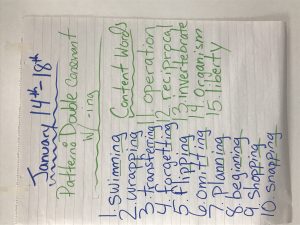 January 14th-18th
Pattern: Double Consonant
w/ -ing
1. swimming
2. wrapping
3. transferring
4. forgetting
5. flipping
6. omitting
7. planning
8. beginning
9. shopping
10. snapping
Content Words
11. operation
12. reciprocal
13. invertebrate
14. organism
15. liberty